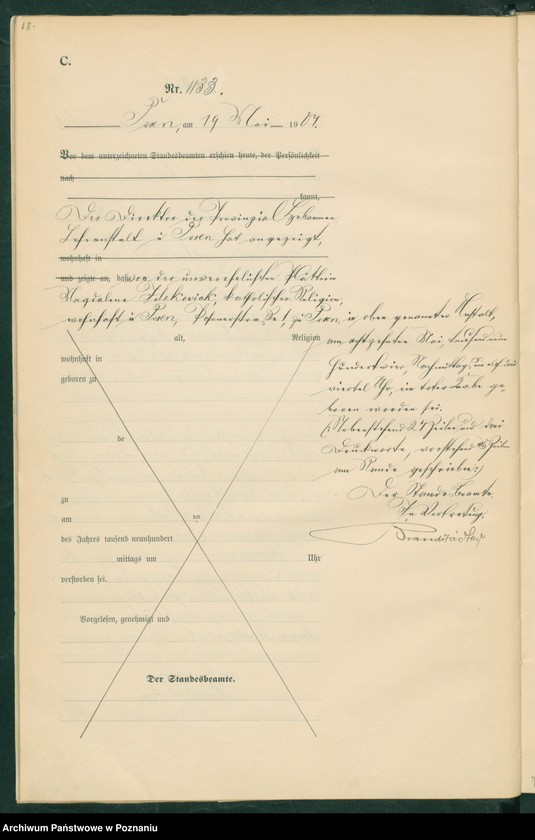 18.
C.
Nr. 1133.
Posen, am 19 Mai 1904.
Vor dem unterzeichneten Standesbeamten erschien heute, der Persönlichkeit
nach
kannt,
Der Direktor der Provinzial Hebammen
Lehranstalt zu Posen hat angezeigt,
wohnhaft in
und zeigte an, daß von der unverehelichten Plätterin
Magdalene katholischer Religion,
wohnhaft zu Posen, zu Posen, in oben genannter Anstalt,
am achtzehnten Mai, tausend neun
hundertvier, Nachmittags um elf drei
viertel Uhr, ein toter Knabe ge-
boren worden sei.
(: Nebenstehend 27 Zeilen und drei
Druckworte, vorstehend Zeilen
am Rande geschrieben :)
Der Standesbeamte.
In Vertretung.
alt, Religion
wohnhaft in
geboren zu
de
zu
am ten
des Jahres tausend neunhundert
mittags um Uhr
verstorben sei.
Vorgelesen, genehmigt und
Der Standesbeamte.
Archiwum Państwowe w Poznaniu